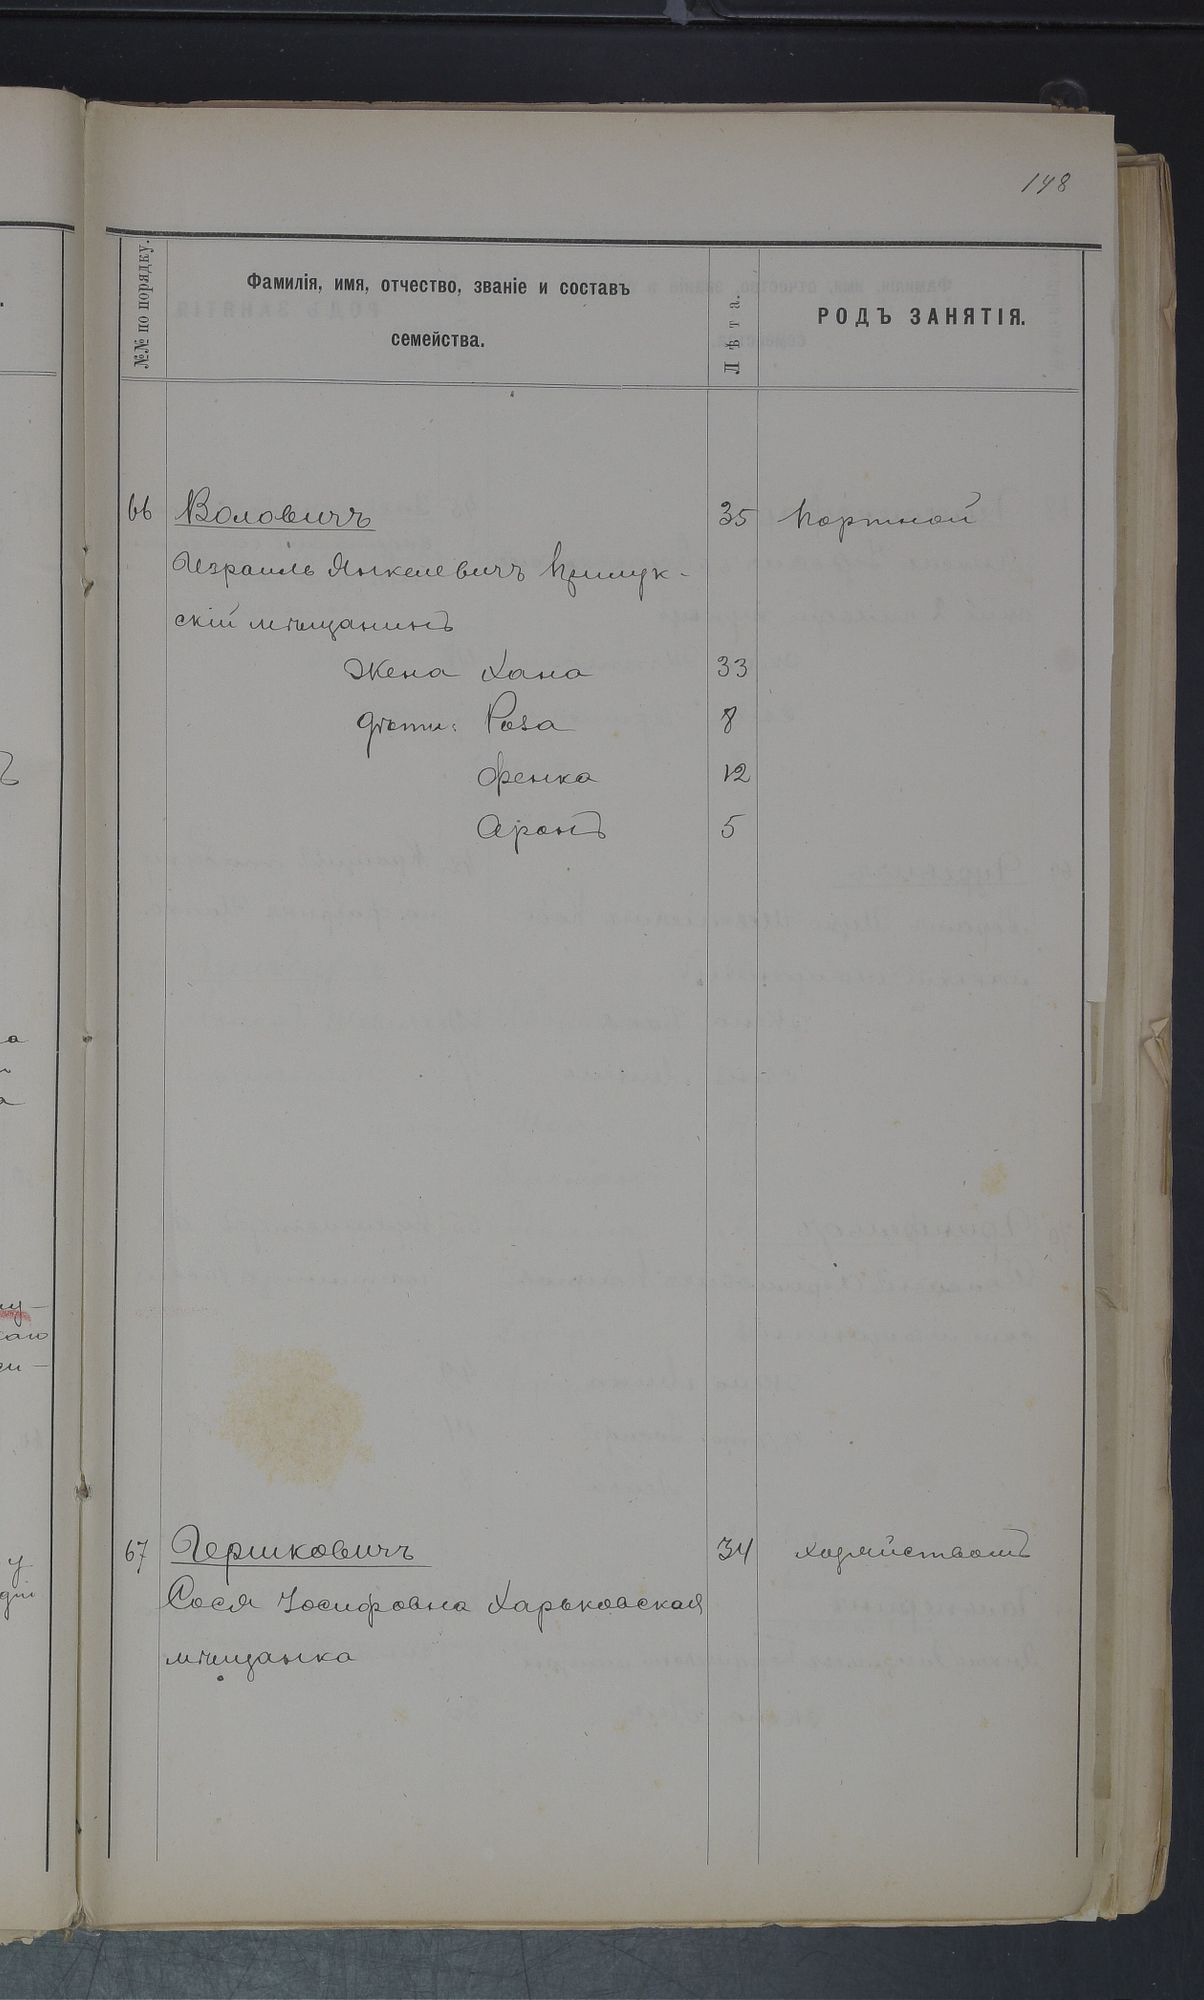 148
№№ по порядку.
Фамилія, имя, отчество, званіе и составъ
семейства.
Лѣта.
РОДЪ ЗАНЯТІЯ.
66 Воловичъ 35 Портной
Израиль Янкелевичъ Прилук-
скій мѣщанинъ
Жена Хана 33
дѣти: Роза 8
Фенка 12
Аронъ 5
67 Гершковичъ 34 Хозяйствомъ
Сося Іосифовна Харьковская
мѣщанка